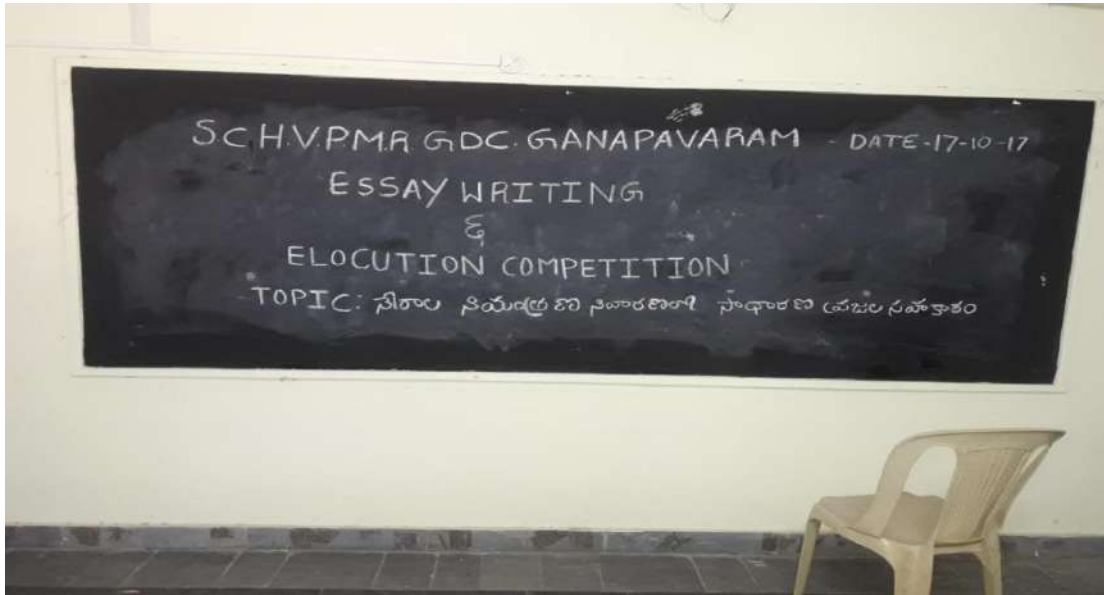 S.C.H.V.P.M.R GDC. GANAPAVARAM - DATE-17-10-17
ESSAY WRITING
&
ELOCUTION COMPETITION
TOPIC: నేరాల నియంత్రణ నివారణలో సాధారణ ప్రజల సహకారం